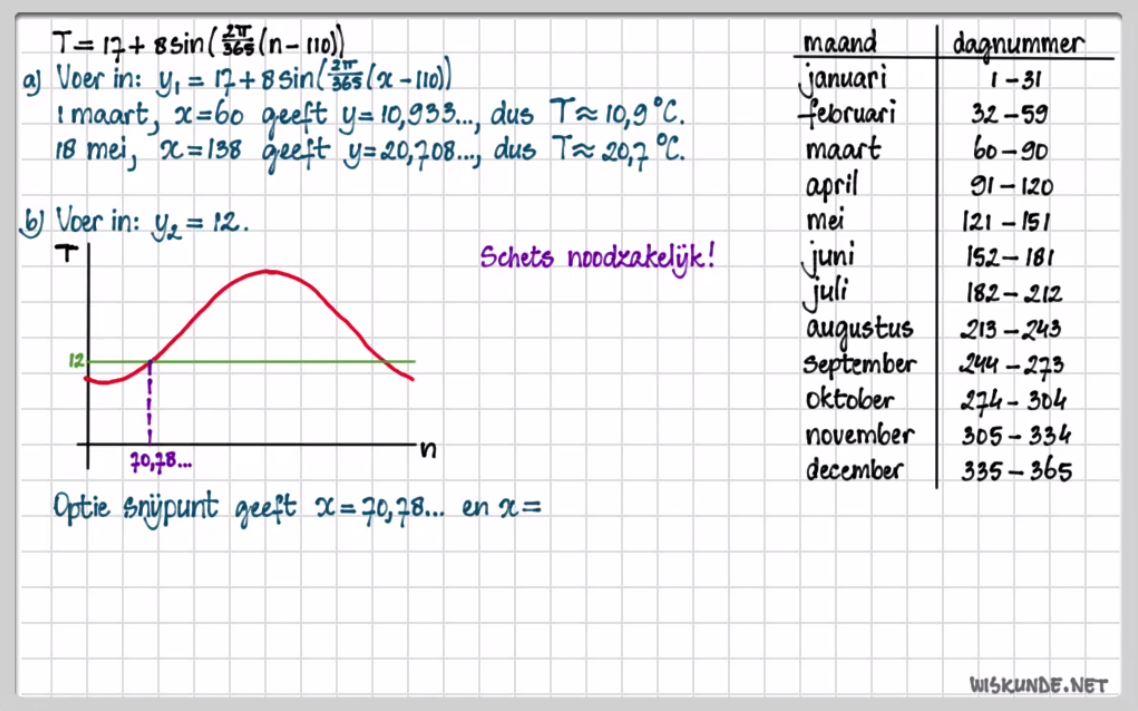 T = 17 + 8 sin( 2π/365 (n – 110))
a) Voer in: y₁ = 17 + 8 sin( 2π/365 (x – 110))
1 maart, x = 60 geeft y = 10,933..., dus T ≈ 10,9 °C.
18 mei, x = 138 geeft y = 20,708..., dus T ≈ 20,7 °C.
b) Voer in: y₂ = 12.
T
Schets noodzakelijk!
12
n
70,78...
Optie snijpunt geeft x = 70,78... en x =
maand dagnummer
januari 1 – 31
februari 32 – 59
maart 60 – 90
april 91 – 120
mei 121 – 151
juni 152 – 181
juli 182 – 212
augustus 213 – 243
september 244 – 273
oktober 274 – 304
november 305 – 334
december 335 – 365
WISKUNDE.NET